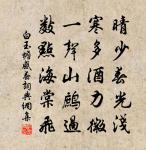 晴少春光淺
寒多酒力微
一聲山鷓過
數點海棠飛
白玉蟾感春詞典網集